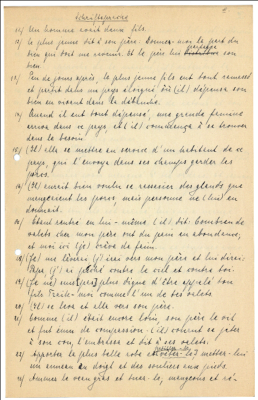 11/ Un homme avait deux fils.
12/ le plus jeune dit à son père: Donnez-moi la part du
bien qui doit me revenir. Et le père lui partagea son
bien
13/ Peu de jours après, le plus jeune fils ont tout ramassé
et partit dans un pays éloigné où (il) dépensa son
bien en vivant dans la débauche.
14/ Quand il eut tout dépensé, une grande famine
arriva dans ce pays, et il commença à se trouver
dans le besoin.
15/ (Il) alla se mettre au service d'un habitant de ce
pays, qui l'envoya dans ses champs garder les
porcs.
16/ (Il) aurait bien voulu se rassasier des glands que
mangeaient les porcs, mais personne ne (lui) en
donnait.
17/ Étant rentré en lui-même (il) dit: Combien de
valets chez mon père ont du pain en abondance,
et moi ici (je) crève de faim.
18/ (Je) me lèverai (j') irai vers mon père et lui dirai:
Papa (j') ai péché contre le ciel et contre toi.
19/ (Je ne) suis [pas] plus digne d'être appelé ton
fils. Traite-moi comme l'un de tes valets.
20/ (Il) se leva et alla vers son père.
21/ Comme (il) était encore loin, son père le vit
et fut ému de compassion. (il) courut se jeter
à son cou, l'embrassa et dit à ses valets:
22/ Apportez la plus belle robe et mettez-lui
un anneau au doigt et des souliers aux pieds.
23/ Amenez le veau gras et tuez-le, mangeons et ré-